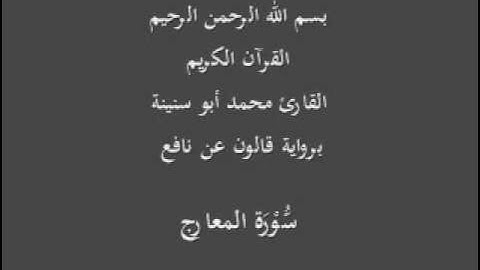 بسم الله الرحمن الرحيم
القرآن الكريم
القارئ محمد أبو سنينة
برواية قالون عن نافع
سُّوْرَة المعارج